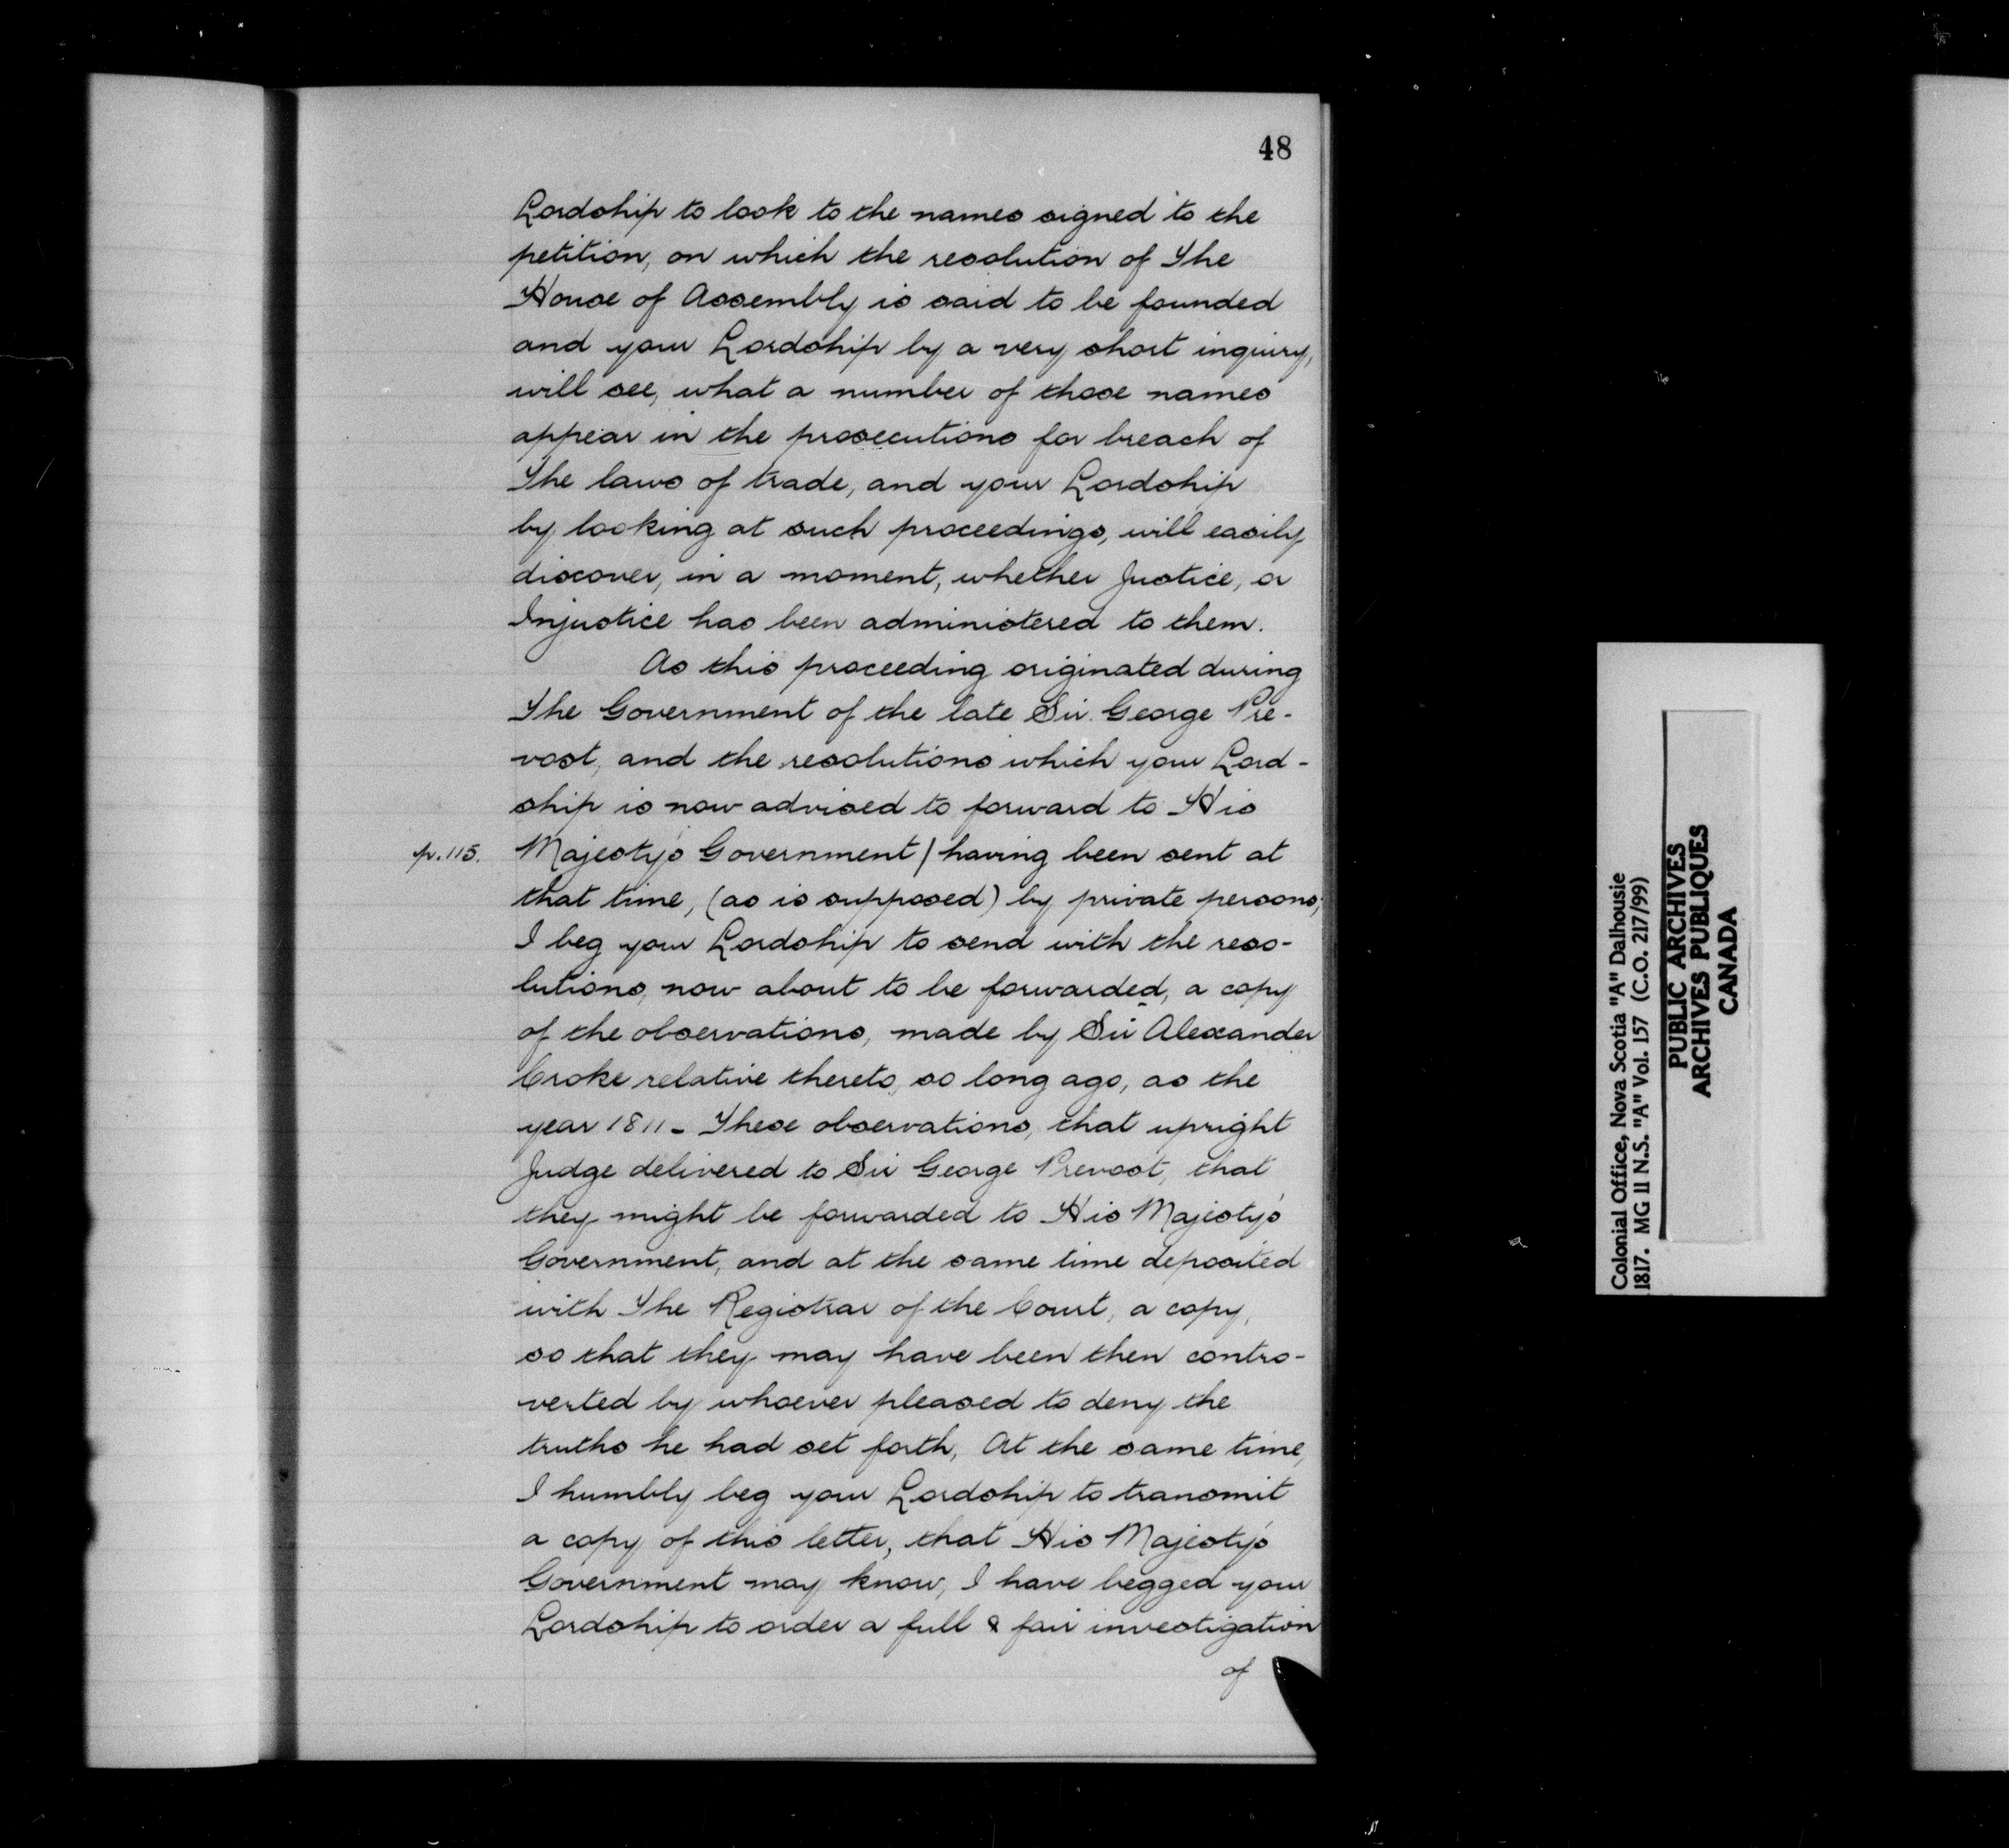 48
Lordship to look to the names signed to the
petition, on which the resolution of The
House of Assembly is said to be founded
and your Lordship by a very short inquiry,
will see, what a number of those names
appear in the prosecutions for breach of
The laws of trade, and your Lordship
by looking at such proceedings, will easily
discover, in a moment, whether Justice, or
Injustice has been administered to them.
As this proceeding originated during
The Government of the late Sir George Pre-
vost, and the resolutions which your Lord-
ship is now advised to forward to His
p. 115. Majesty's Government / having been sent at
that time, (as is supposed) by private persons,
I beg your Lordship to send with the reso-
lutions, now about to be forwarded, a copy
of the observations, made by Sir Alexander
Croke relative thereto, so long ago, as the
year 1811 - These observations, that upright
Judge delivered to Sir George Prevost, that
they might be forwarded to His Majesty's
Government, and at the same time deposited
with The Registrar of the Court, a copy,
so that they may have been then contro-
verted by whoever pleased to deny the
truths he had set forth, At the same time,
I humbly beg your Lordship to transmit
a copy of this letter, that His Majesty's
Government may know, I have begged your
Lordship to order a full & fair investigation
of
Colonial Office, Nova Scotia "A" Dalhousie
1817. MG 11 N.S. "A" Vol. 157 (C.O. 217/99)
PUBLIC ARCHIVES
ARCHIVES PUBLIQUES
CANADA